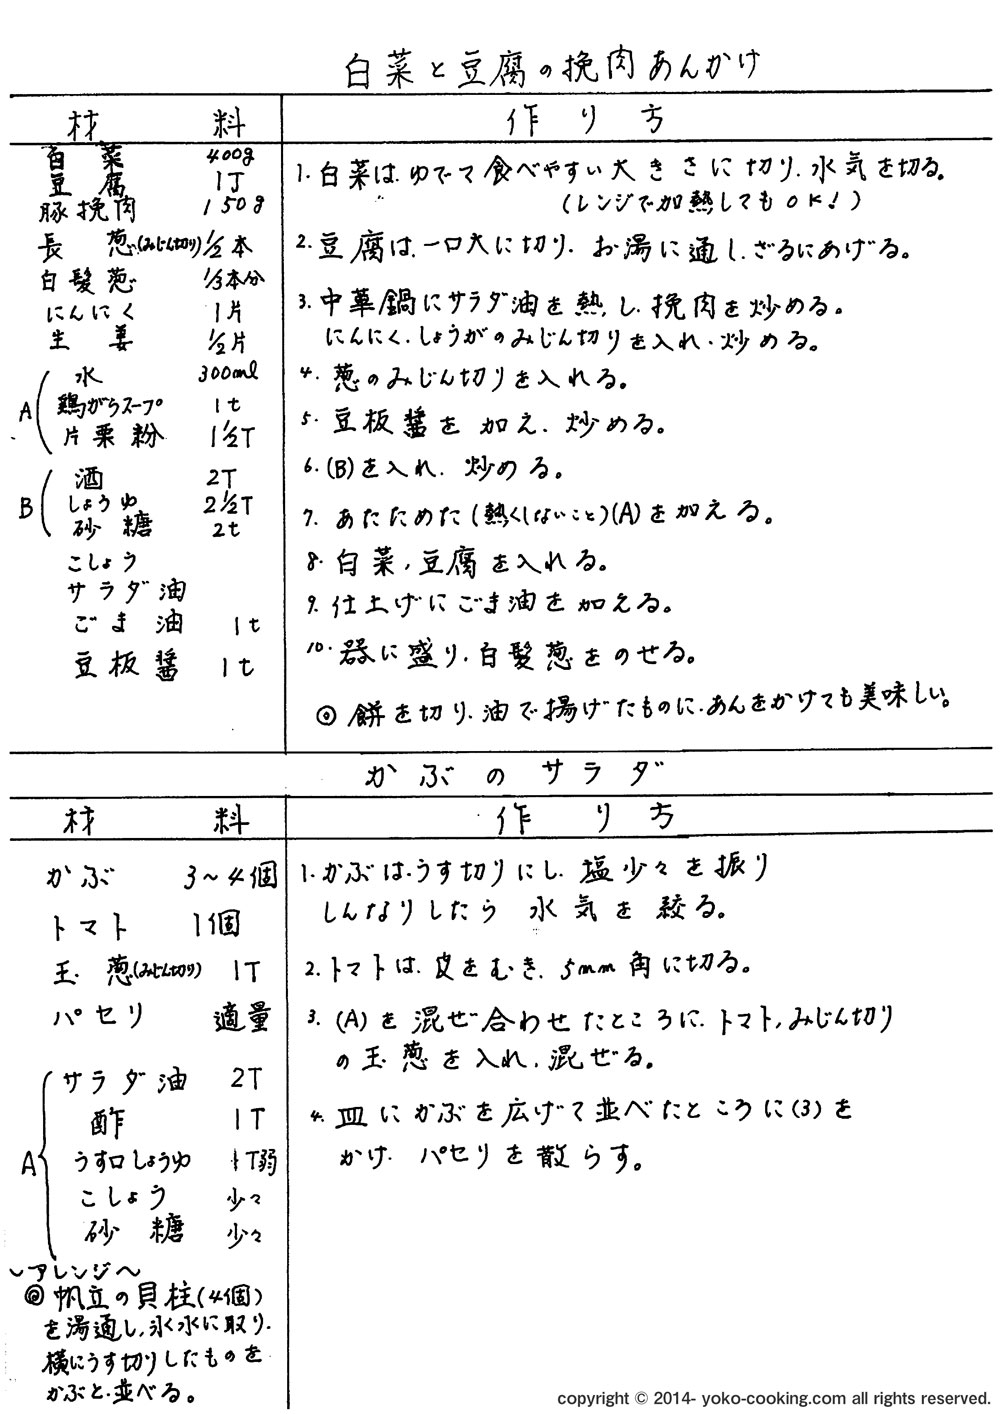 白菜と豆腐の挽肉あんかけ
材料
作り方
白菜 400g
豆腐 1丁
豚挽肉 150g
長葱(みじん切り) 1/2本
白髪葱 1/3本分
にんにく 1片
生姜 1/2片
A
水 300ml
鶏がらスープ 1t
片栗粉 1 1/2T
B
酒 2T
しょうゆ 2 1/2T
砂糖 2t
こしょう
サラダ油
ごま油 1t
豆板醤 1t
1. 白菜は、ゆでて食べやすい大きさに切り、水気を切る。
(レンジで加熱してもOK!)
2. 豆腐は、一口大に切り、お湯に通し、ざるにあげる。
3. 中華鍋にサラダ油を熱し、挽肉を炒める。
にんにく、しょうがのみじん切りを入れ、炒める。
4. 葱のみじん切りを入れる。
5. 豆板醤を加え、炒める。
6. (B)を入れ、炒める。
7. あたためた(熱くしないこと)(A)を加える。
8. 白菜、豆腐を入れる。
9. 仕上げにごま油を加える。
10. 器に盛り、白髪葱をのせる。
◎ 餅を切り、油で揚げたものに、あんをかけても美味しい。
かぶのサラダ
材料
作り方
かぶ 3~4個
トマト 1個
玉葱(みじん切り) 1T
パセリ 適量
A
サラダ油 2T
酢 1T
うす口しょうゆ 1T弱
こしょう 少々
砂糖 少々
~アレンジ~
◎ 帆立の貝柱(4個)
を湯通し、氷水に取り、
横にうす切りしたものを
かぶと、並べる。
1. かぶは、うす切りにし、塩少々を振り
しんなりしたら 水気を絞る。
2. トマトは、皮をむき、5mm角に切る。
3. (A)を混ぜ合わせたところに、トマト、みじん切り
の玉葱を入れ、混ぜる。
4. 皿にかぶを広げて並べたところに(3)を
かけ、パセリを散らす。
copyright © 2014- yoko-cooking.com all rights reserved.